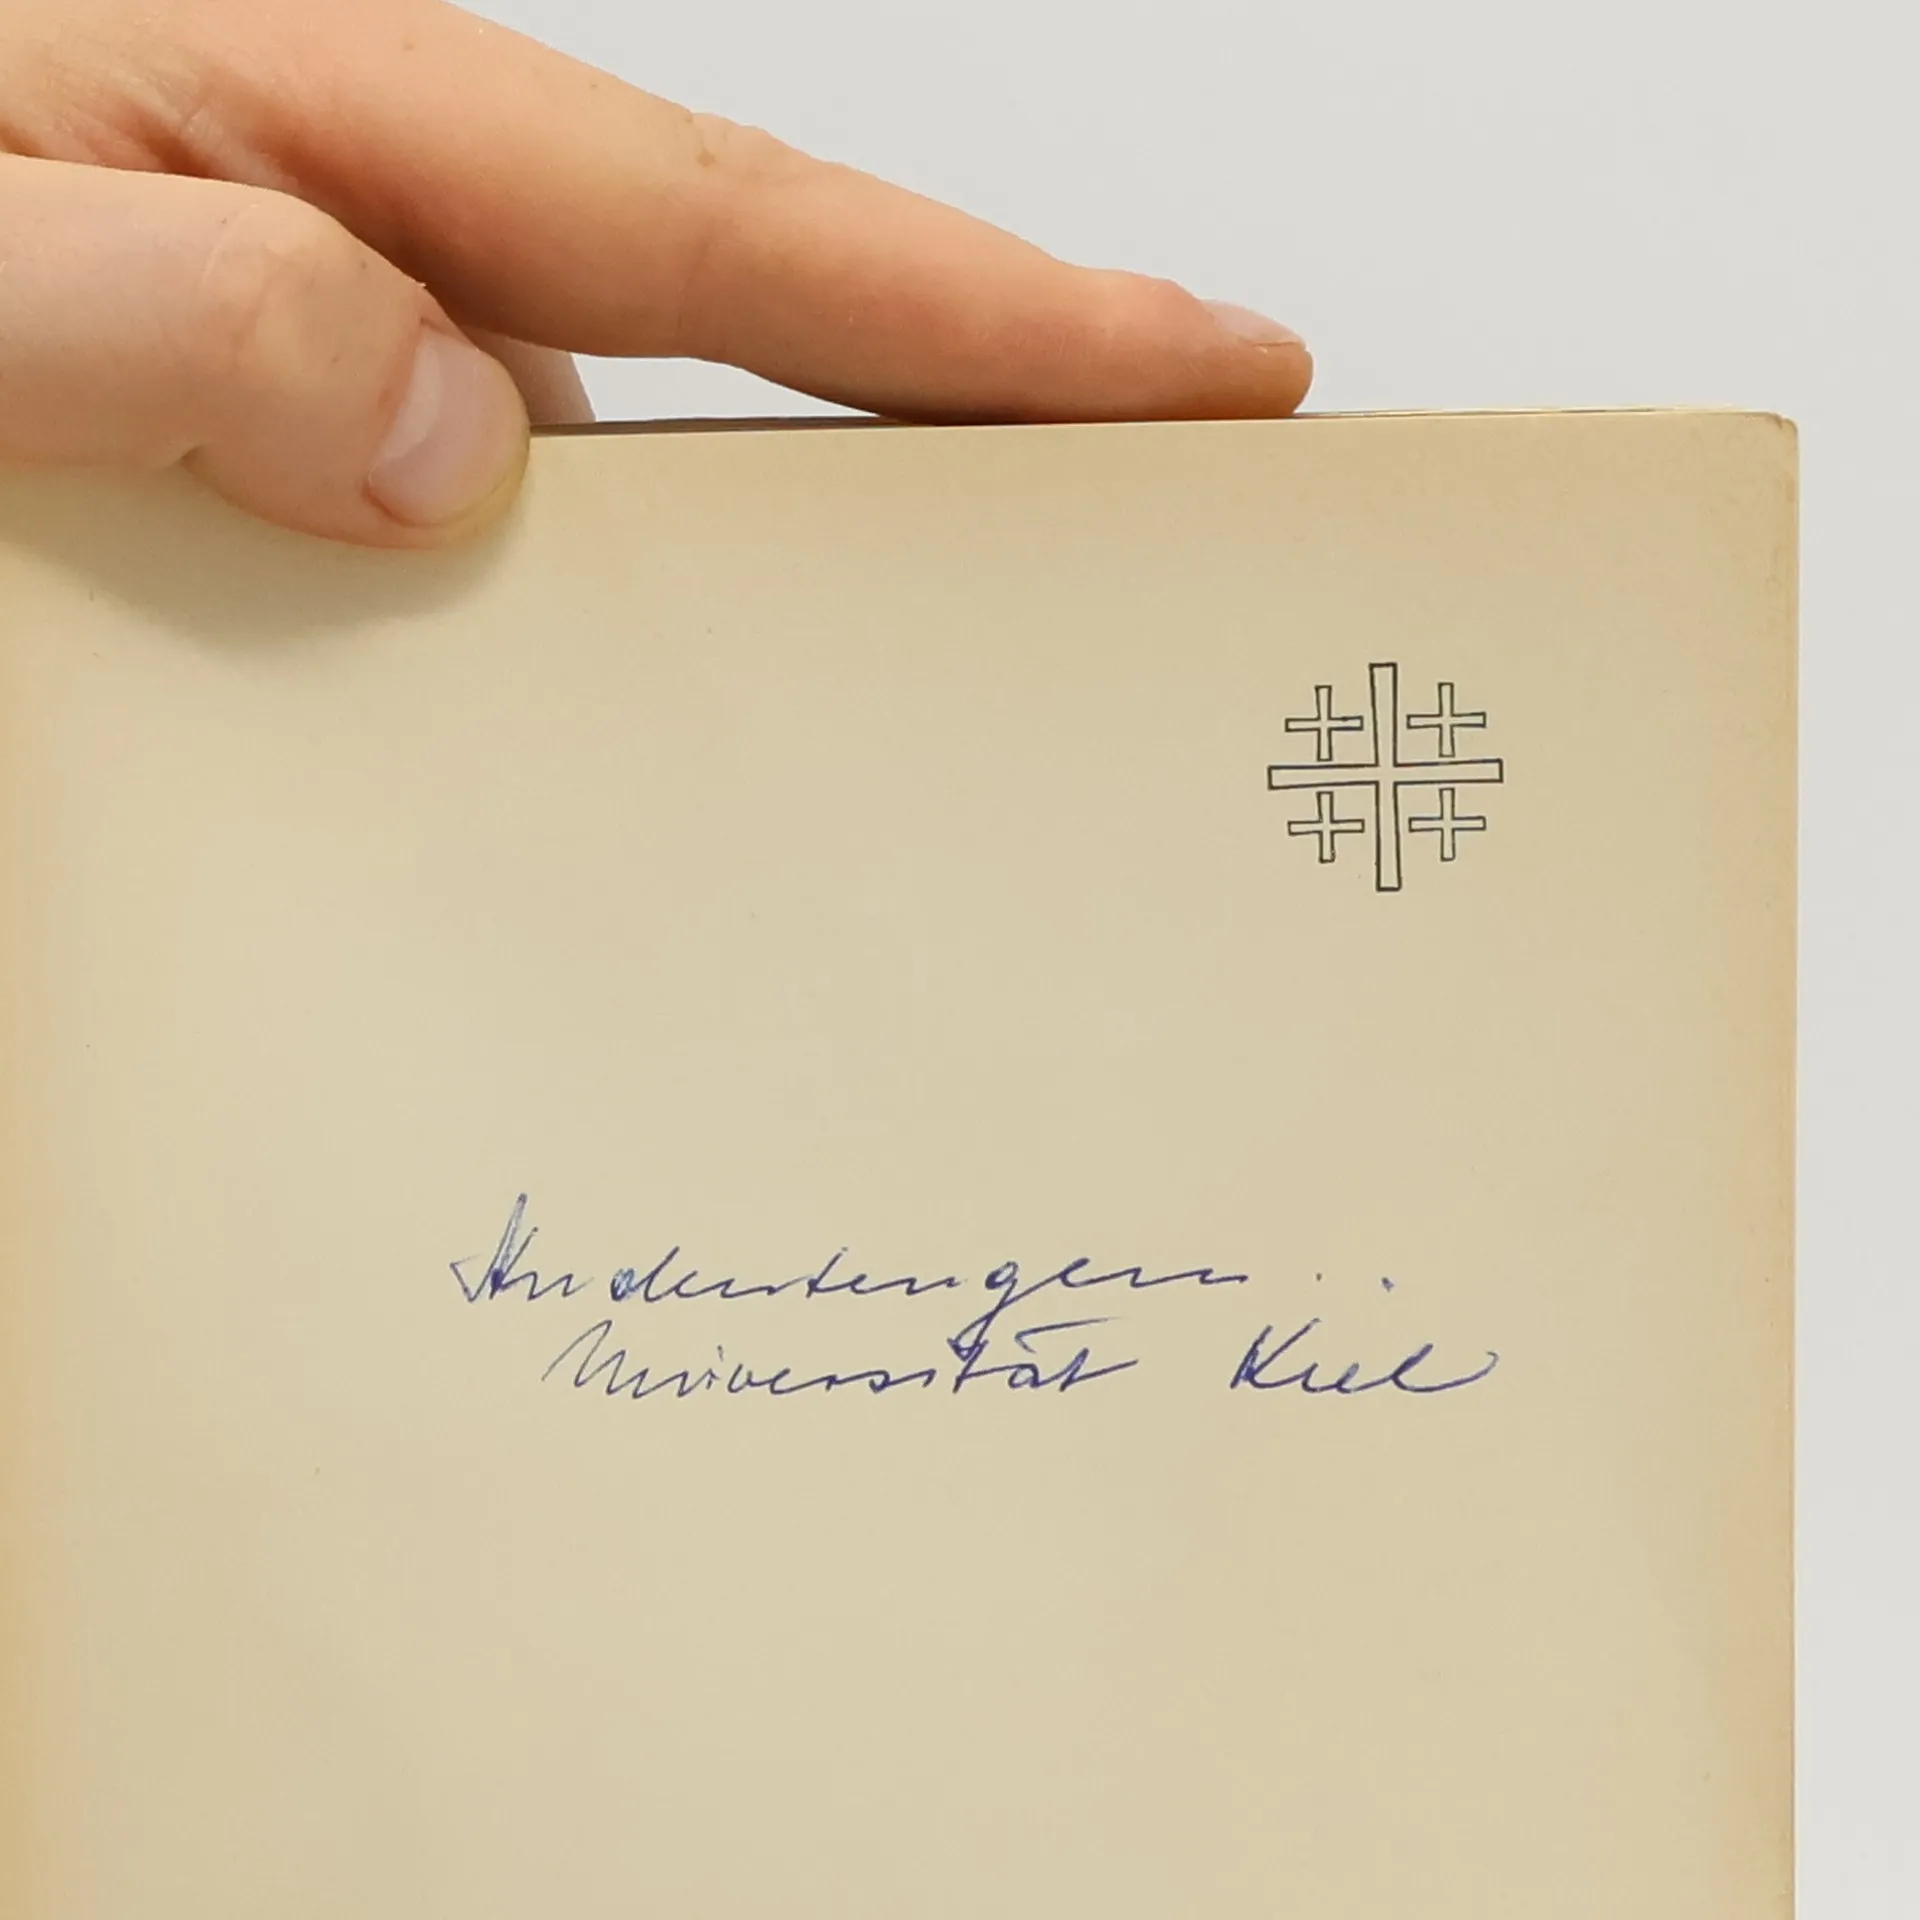 Studentengem..
Universität Kiel